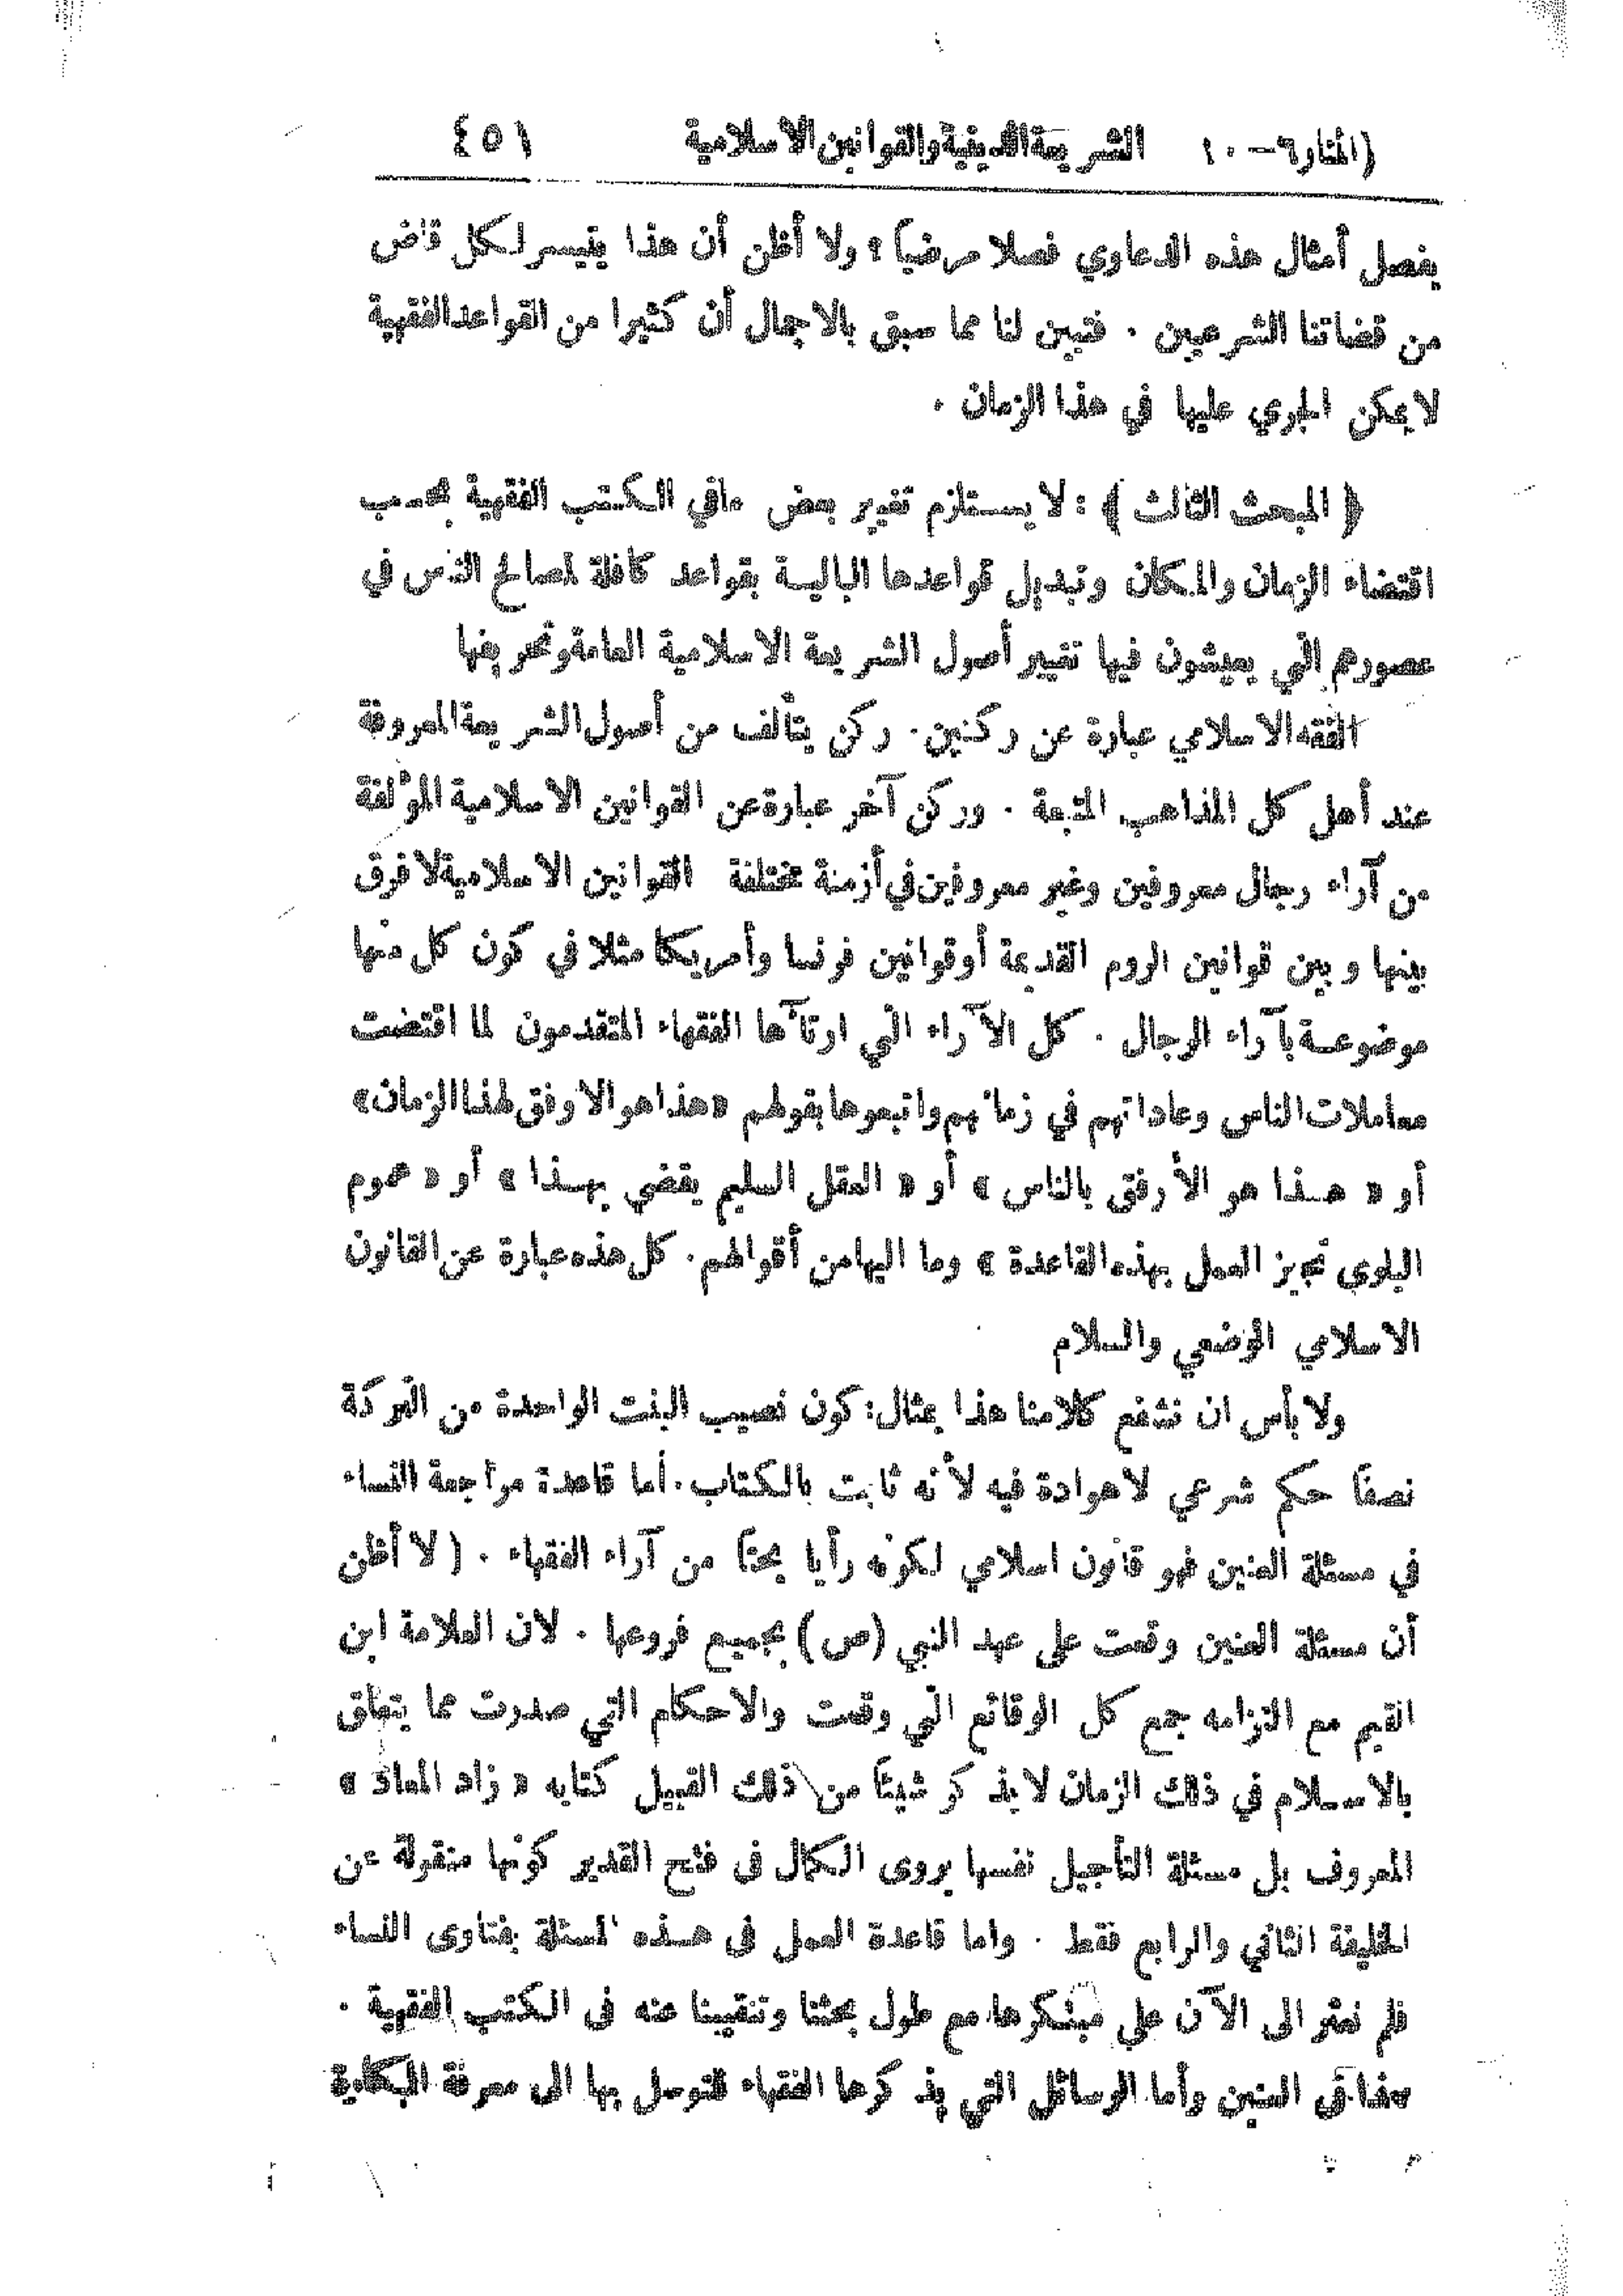 (المنار ٦ – ١٠ الشريعة الدينية والقوانين الاسلامية ٤٥١
يفصل أمثال هذه الدعاوي فصلا مرضياً؟ ولا أظن أن هذا يتيسر لكل قاض
من قضاتنا الشرعيين . فتبين لنا مما سبق بالاجمال أن كثيرا من القواعد الفقهية
لا يمكن الجري عليها في هذا الزمان .
﴿ المبحث الثالث ﴾ : لا يستلزم تغيير بعض مافي الكتب الفقهية بحسب
اقتضاء الزمان والمكان وتبديل قواعدها البالية بقواعد كافلة لمصالح الناس في
عصورهم التي يعيشون فيها تغيير أصول الشريعة الاسلامية العامة وتحريفها
الفقه الاسلامي عبارة عن ركنين . ركن يتألف من أصول الشريعة المعروفة
عند أهل كل المذاهب المتبعة . وركن آخر عبارة عن القوانين الاسلامية المؤلفة
من آراء رجال معروفين وغير معروفين في أزمنة مختلفة القوانين الاسلامية لا فرق
بينها وبين قوانين الروم القديمة أو قوانين فرنسا وأمريكا مثلا في كون كل منها
موضوعة بآراء الرجال . كل الآراء التي ارتآها الفقهاء المتقدمون لما اقتضت
معاملات الناس وعاداتهم في زمانهم واتبعوها بقولهم «هذا هو الاوفق لهذا الزمان»
أو « هذا هو الأرفق بالناس » أو « العقل السليم يقضي بهذا » أو « عموم
البلوى تجيز العمل بهذه القاعدة » وما اليها من أقوالهم . كل هذه عبارة عن القانون
الاسلامي الوضعي والسلام
ولا بأس ان نشفع كلامنا هذا بمثال: كون نصيب البنت الواحدة من التركة
نصفاً حكم شرعي لا هوادة فيه لأنه ثابت بالكتاب . أما قاعدة مراجعة النساء
في مسئلة العنين فهو قانون اسلامي لكونه رأيا بحتاً من آراء الفقهاء . ( لا أظن
أن مسئلة العنين وقعت على عهد النبي (ص) بجميع فروعها . لان العلامة ابن
القيم مع التزامه جمع كل الوقائع التي وقعت والاحكام التي صدرت مما يتعلق
بالاسلام في ذلك الزمان لا يذكر شيئاً من ذلك القبيل كتابه « زاد المعاد »
المعروف بل مسئلة التأجيل نفسها يروى الكمال فى فتح القدير كونها منقولة عن
الخليفة الثاني والرابع فقط . واما قاعدة العمل فى هذه المسئلة بفتاوى النساء
فلم نعثر الى الآن على مبتكرها مع طول بحثنا وتنقيبنا عنه فى الكتب الفقهية .
العنين وأما الوسائل التي يذكرها الفقهاء للتوصل بها الى معرفة البكارة